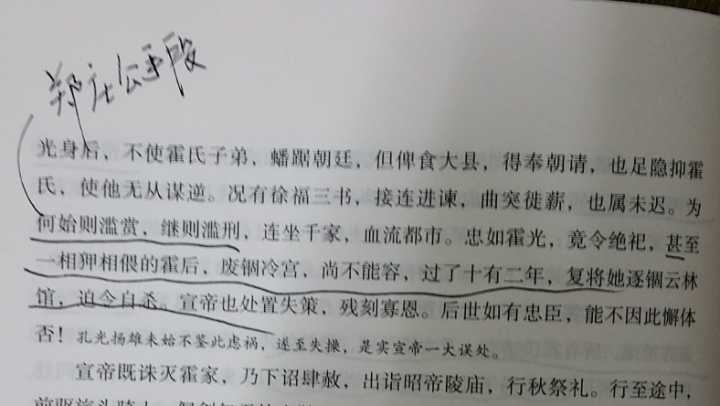 郑庄公手段
光身后，不使霍氏子弟，蟠踞朝廷，但俾食大县，得奉朝请，也足隐抑霍
氏，使他无从谋逆。况有徐福三书，接连进谏，曲突徙薪，也属未迟。为
何始则滥赏，继则滥刑，连坐千家，血流都市。忠如霍光，竟令绝祀，甚至
一相狎相偎的霍后，废锢冷宫，尚不能容，过了十有二年，复将她逐锢云林
馆，迫令自杀。宣帝也处置失策，残刻寡恩。后世如有忠臣，能不因此懈体
否！孔光扬雄未始不鉴此虑祸，遂至失操，是实宣帝一大误处。
宣帝既诛灭霍家，乃下诏肆赦，出诣昭帝陵庙，行秋祭礼。行至途中，